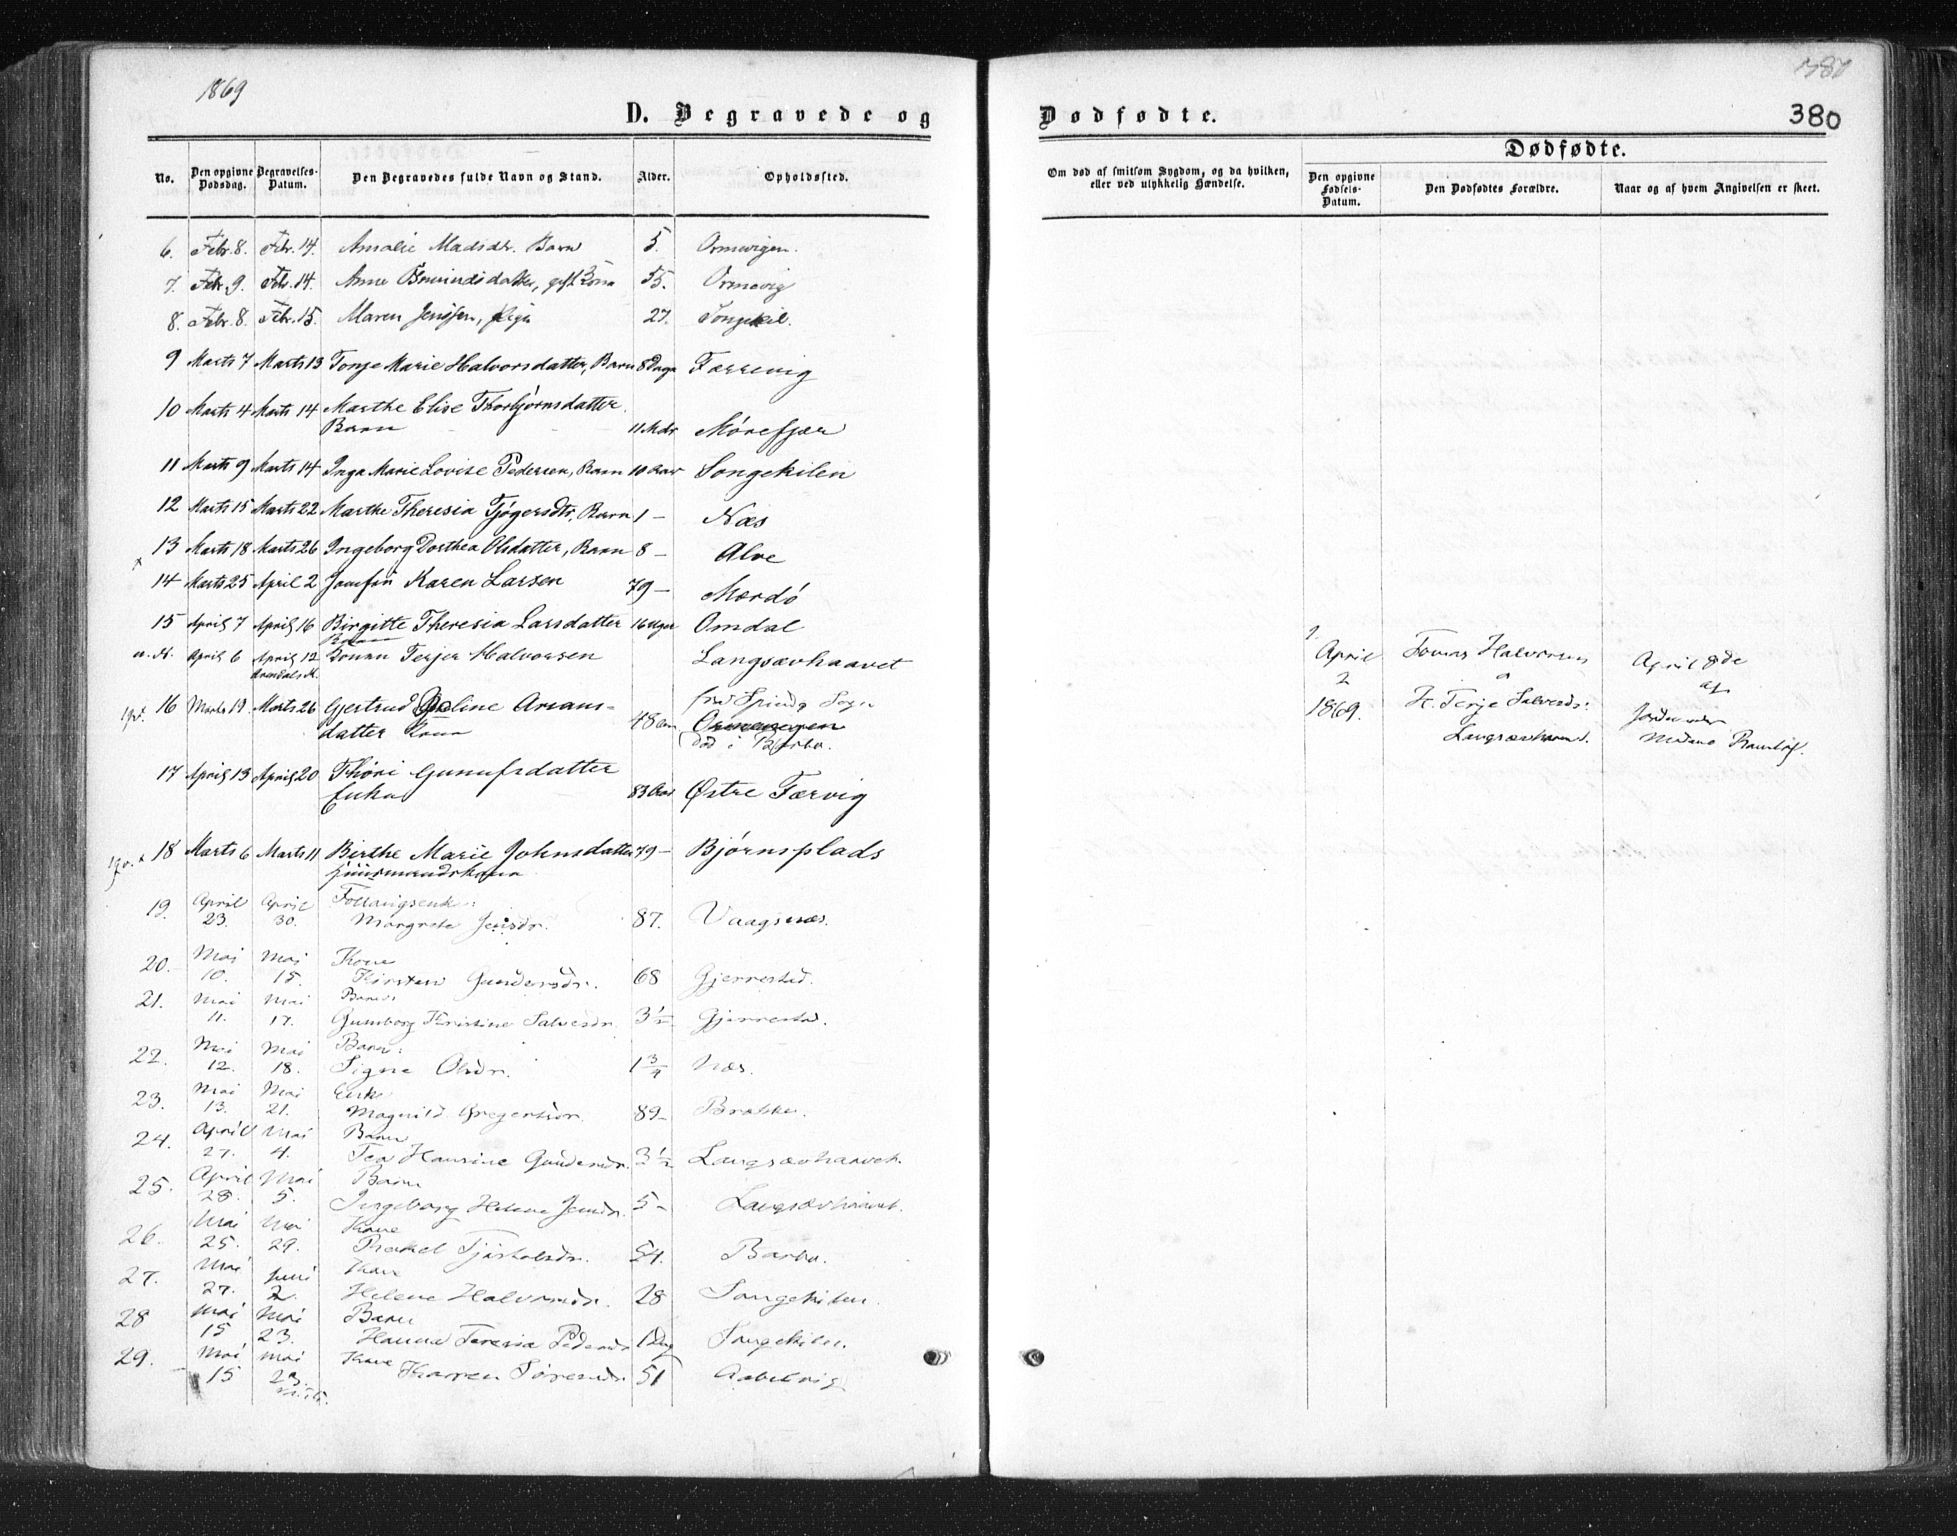 1869
D. Begravede og
No. Den opgivne Dødsdag. Begravelses-Datum. Den Begravedes fulde Navn og Stand. Alder. Opholdssted.
6. Febr. 8. Febr. 14. Amalie Madsdr. Barn 5. Ormevigen.
7. Febr. 9. Febr. 14. Anne gift Kone 55. Ormevig
8. Febr. 8. Febr. 15. Maren Jensen, Pige 27. Songekil.
9 Marts 7 Marts 13 Tonje Marie Halvorsdatter, Barn 8 Dage Færrevig
10 Marts 4 Marts 14 Marthe Elise Thorbjørnsdatter
Barn 11 Mdr Mørefjær
11 Marts 9 Marts 14 Inga Marie Lovise Pedersen, Barn 10 Aar Songekilen
12 Marts 15 Marts 22 Marthe Theresia Tjøgersdtr, Barn 1 - Næs
13 Marts 18 Marts 26 Ingeborg Dorthea Olsdatter, Barn 8 - Alve
14 Marts 25 April 2 Jomfru Karen Larsen 79 - Mærdö
15 April 7 April 16 Birgitte Theresia Larsdatter 16 Uger Omdal
Barn
u. N. April 6 April 12 Terjer Halvorsen Langsævhaavet
Arendals K.
16 Marts 19 Marts 26 Gjertrud Oline Anans-
datter Kone 48 Aar
fra Spinds Sogn
Ormevigen
død i Barbo.
17 April 13 April 20 Thóri Gunufsdatter
Enke 83 Aar Østre Færvig
18 Marts 6 Marts 11 Birthe Marie Johnsdatter 79 - Bjørnsplads
Huusmandskone
19. April 23. April 30. Margrete Jensdr. 87. Vaagsnæs.
20. Mai 10. Mai 15. Kone
Kirsten Gundersdr. 68 Gjerrestad.
21. Mai 11. Mai 17. Barn
Gunborg Kristine Salvesdr. 3 1/2 Gjerrestad.
22. Mai 12. Mai 18. Barn:
Signe Olsdr. 1 3/4 Næs.
23. Mai 13. Mai 21. Enke
Magnild Gregersdr. 89 - Bratke.
24. April 27. Mai 4. Barn
Tea Hansine Gundersdr. 3 1/2 Langsævhaavet.
25. April 28. Mai 5. Barn
Ingeborg Helene Jensdr. 5 - Langsævhaavet.
26. Mai 25. Mai 29. Kone
Rakel Tjøstolsdr. 54. Barbo.
27. Mai 27. Juni 2. Kone
Helene Halvorsdr. 28 Songekilen.
28 Mai 15 Mai 23. Barn
Hanna Teresia Pedersdr 1 Dag Songekilen.
29. Mai 15 Mai 23. Kone
Karen Sørensdr. 51 Aabelvig
Dødfødte.
380
Om død af smitsom Sygdom, og da hvilken, eller ved ulykkelig Hændelse.
Dødfødte.
Den opgivne Fødsels-Datum. Den Dødfødtes Forældre. Naar og af hvem Angivelsen er skeet.
1.
April 2 1869. Tomas Halvorsen
H. Terje Salvesdr:
Langsævhaavet.
April 8de
af
Jordemoder
Madame